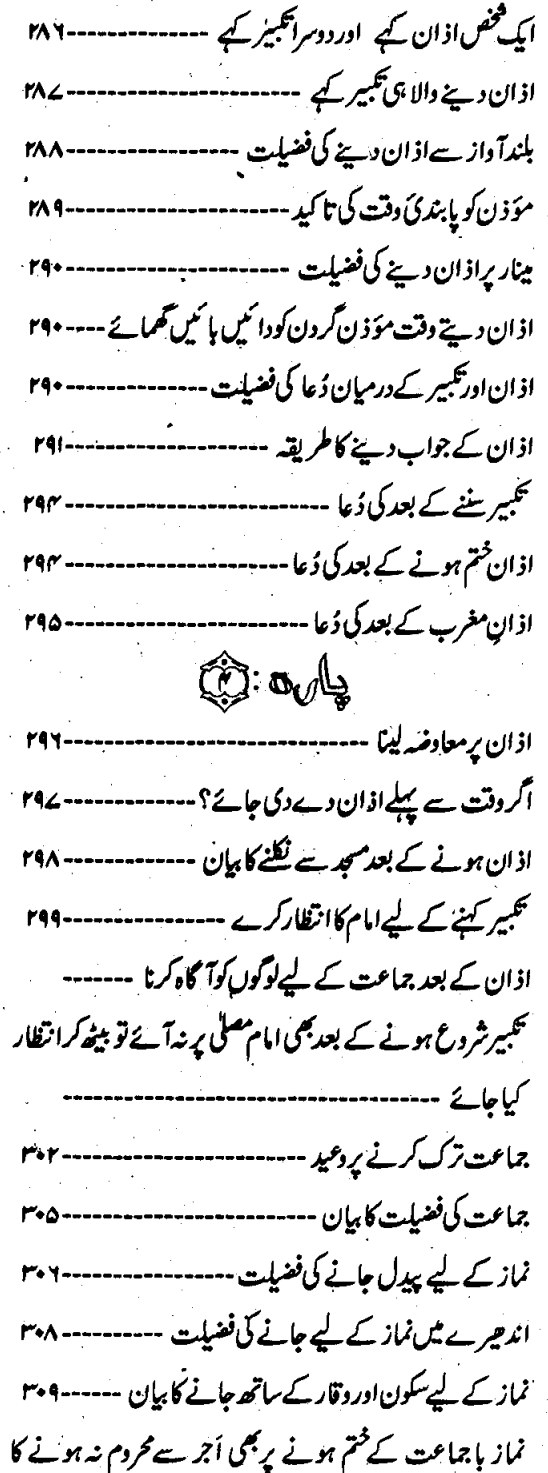 ایک شخص اذان کہے اور دوسرا تکبیر کہے -------------- ۲۸۶
اذان دینے والا ہی تکبیر کہے ----------------------- ۲۸۷
بلند آواز سے اذان دینے کی فضیلت ----------------- ۲۸۸
مؤذن کو پابندئ وقت کی تاکید --------------------- ۲۸۹
مینار پر اذان دینے کی فضیلت --------------------- ۲۹۰
اذان دیتے وقت مؤذن گردن کو دائیں بائیں گھمائے ---- ۲۹۰
اذان اور تکبیر کے درمیان دُعا کی فضیلت -------------- ۲۹۰
اذان کے جواب دینے کا طریقہ ------------------- ۲۹۱
تکبیر سننے کے بعد کی دُعا ------------------------- ۲۹۴
اذان ختم ہونے کے بعد کی دُعا --------------------- ۲۹۴
اذانِ مغرب کے بعد کی دُعا ----------------------- ۲۹۵
پارہ : ۴
اذان پر معاوضہ لینا ----------------------------- ۲۹۶
اگر وقت سے پہلے اذان دے دی جائے؟ ------------- ۲۹۷
اذان ہونے کے بعد مسجد سے نکلنے کا بیان ------------- ۲۹۸
تکبیر کہنے کے لیے امام کا انتظار کرے ---------------- ۲۹۹
اذان کے بعد جماعت کے لیے لوگوں کو آگاہ کرنا -------
تکبیر شروع ہونے کے بعد بھی امام مصلیٰ پر نہ آئے تو بیٹھ کر انتظار
کیا جائے -----------------------------------
جماعت ترک کرنے پر وعید ----------------------- ۳۰۲
جماعت کی فضیلت کا بیان ------------------------ ۳۰۵
نماز کے لیے پیدل جانے کی فضیلت ----------------- ۳۰۶
اندھیرے میں نماز کے لیے جانے کی فضیلت ---------- ۳۰۸
نماز کے لیے سکون اور وقار کے ساتھ جانے کا بیان ------ ۳۰۹
نماز با جماعت کے ختم ہونے پر بھی اَجر سے محروم نہ ہونے کا